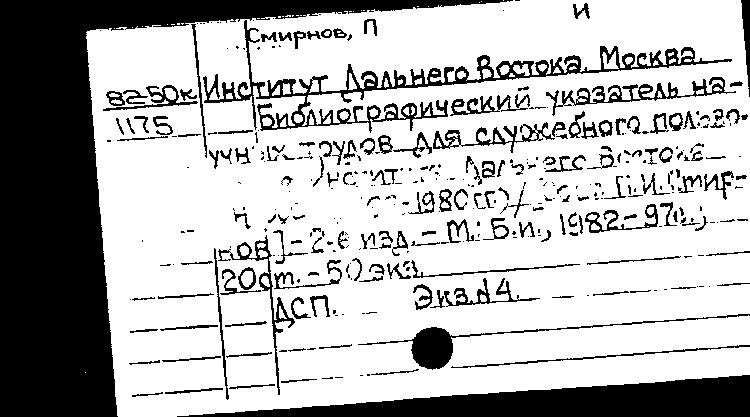 Смирнов, П И
82-50к Институт Дальнего Востока. Москва.
1175 Библиографический указатель на-
учных трудов для служебного пользо-
Дальнего Востока
-1980гг)/ П.И.Смир-
нов] - 2-е изд. - М.: Б.и., 1982. - 97с.;
20см. - 50 экз.
ДСП. Экз.№4.